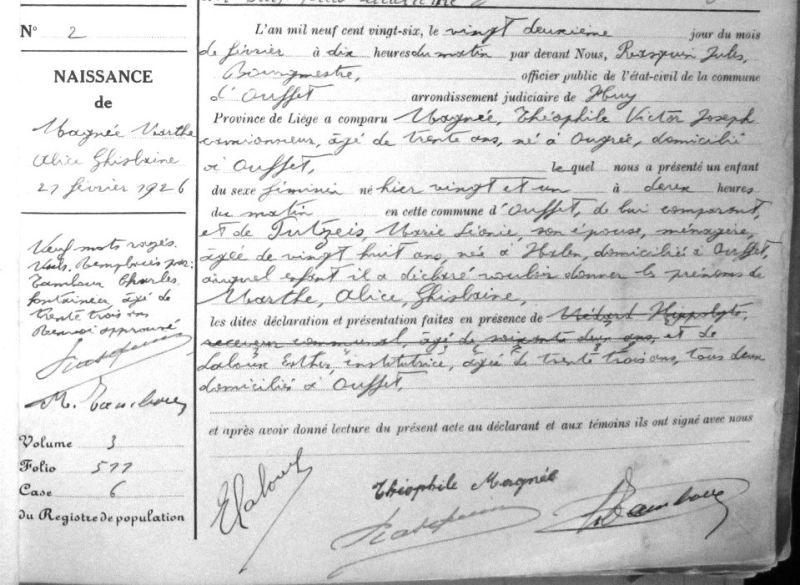 N° 2
NAISSANCE
de
Magnée Marthe
Alice Ghislaine
21 février 1926
Neuf mots rayés.
Remplacés par:
Tambour Charles,
fontainier, âgé de
trente trois ans
Renvoi approuvé
M. Tambour
Volume 3
Folio 577
Case 6
du Registre de population
L'an mil neuf cent vingt-six, le vingt deuxième jour du mois
de février à dix heures du matin par devant Nous, Rasquin Jules,
Bourgmestre, officier public de l'état-civil de la commune
d'Ouffet arrondissement judiciaire de Huy
Province de Liège a comparu Magnée, Théophile Victor Joseph
camionneur, âgé de trente ans, né à Ougrée, domicilié
à Ouffet, le quel nous a présenté un enfant
du sexe féminin né hier vingt et un à deux heures
du matin en cette commune d'Ouffet, de lui comparant,
et de Putzeis, Marie Léonie, son épouse, ménagère,
âgée de vingt huit ans, née à Halen, domiciliée à Ouffet,
auquel enfant il a déclaré vouloir donner les prénoms de
Marthe, Alice, Ghislaine,
les dites déclaration et présentation faites en présence de Médard Hippolyte,
receveur communal, âgé de soixante deux ans, et de
Laloux Esther, institutrice, âgée de trente trois ans, tous deux
domiciliés à Ouffet,
et après avoir donné lecture du présent acte au déclarant et aux témoins ils ont signé avec nous
E Laloux
Théophile Magnée
Tambour